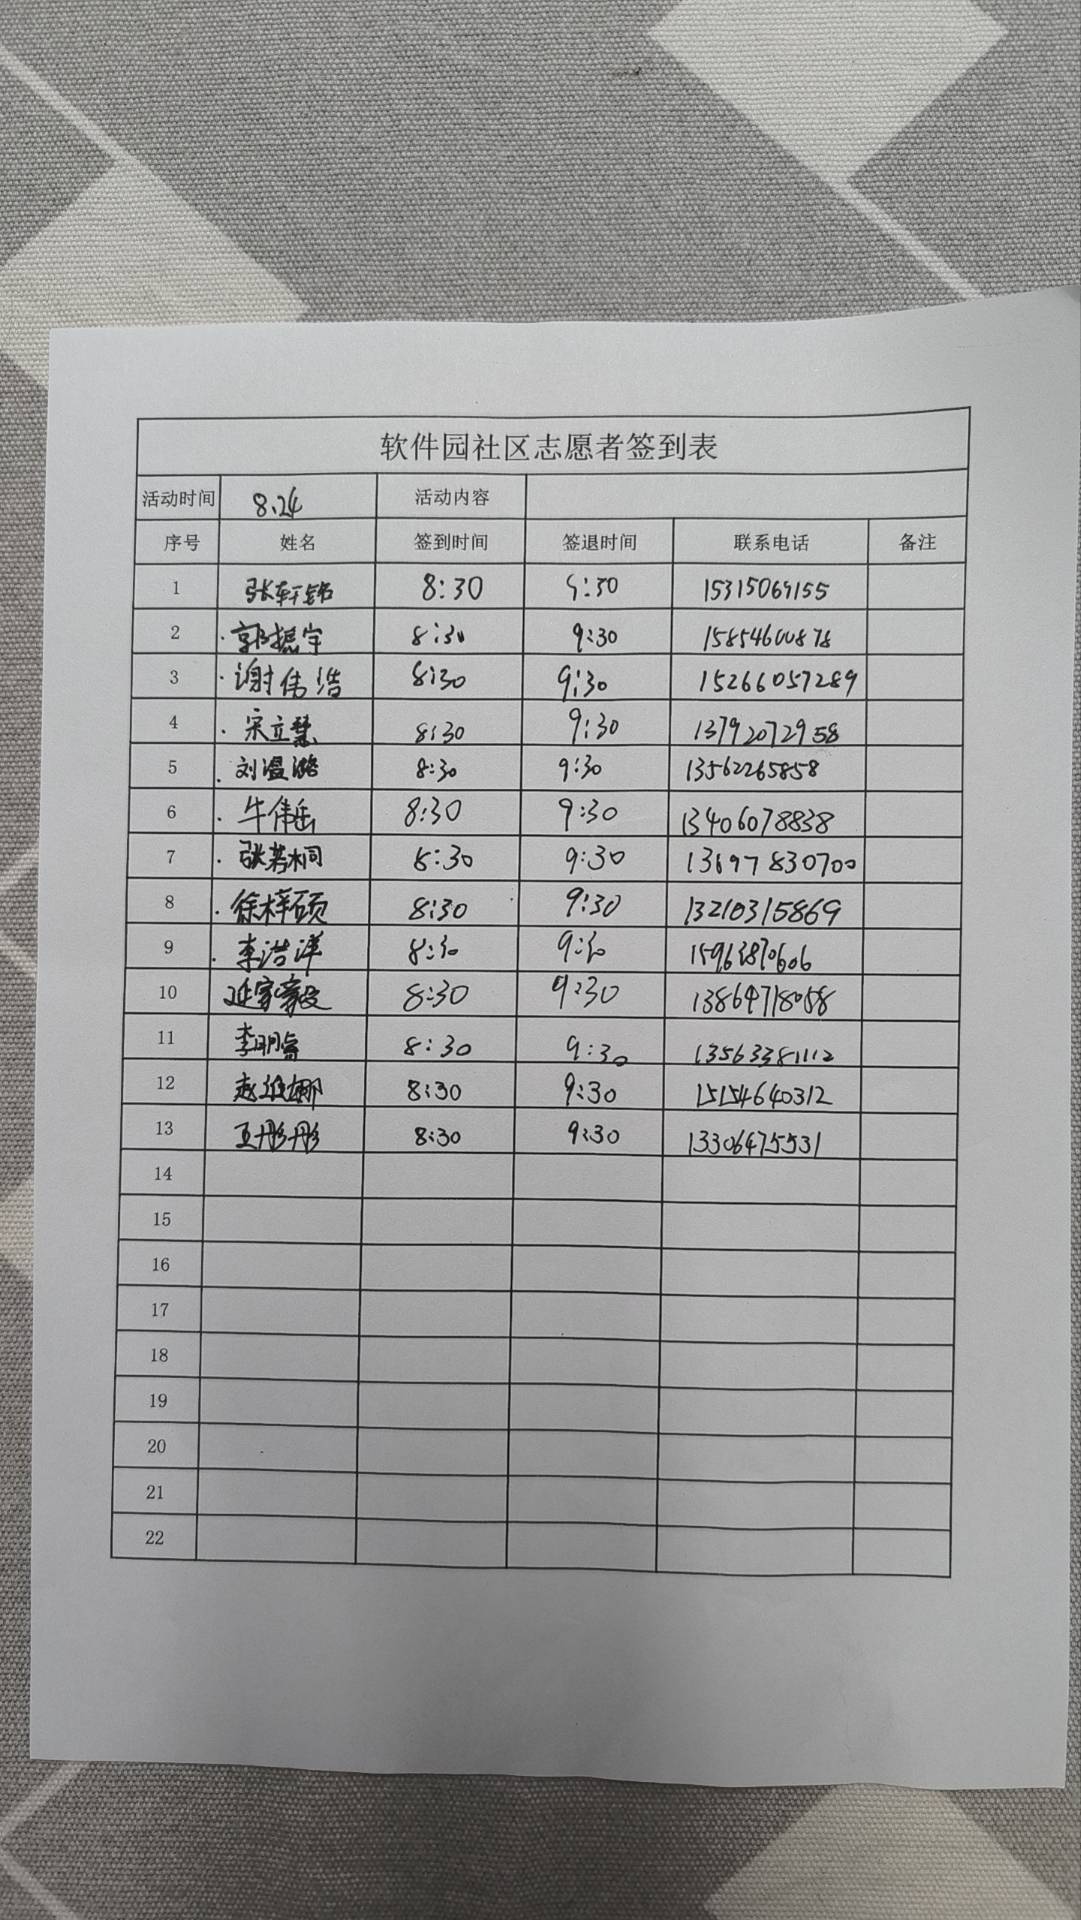 软件园社区志愿者签到表
活动时间 8.24 活动内容
序号 姓名 签到时间 签退时间 联系电话 备注
1 张轩铭 8:30 9:30 15315069155
2 郭振宇 8:30 9:30 15854600878
3 谢伟浩 8:30 9:30 15266057289
4 宋立慧 8:30 9:30 13792072958
5 刘温潞 8:30 9:30 13562265858
6 牛伟岳 8:30 9:30 13406078838
7 张若桐 8:30 9:30 13697830700
8 徐梓硕 8:30 9:30 13210315869
9 李浩洋 8:30 9:30 15963870606
10 8:30 9:30 13864718058
11 李明睿 8:30 9:30 13563381112
12 8:30 9:30 15154640312
13 王彤彤 8:30 9:30 13306475531
14
15
16
17
18
19
20
21
22